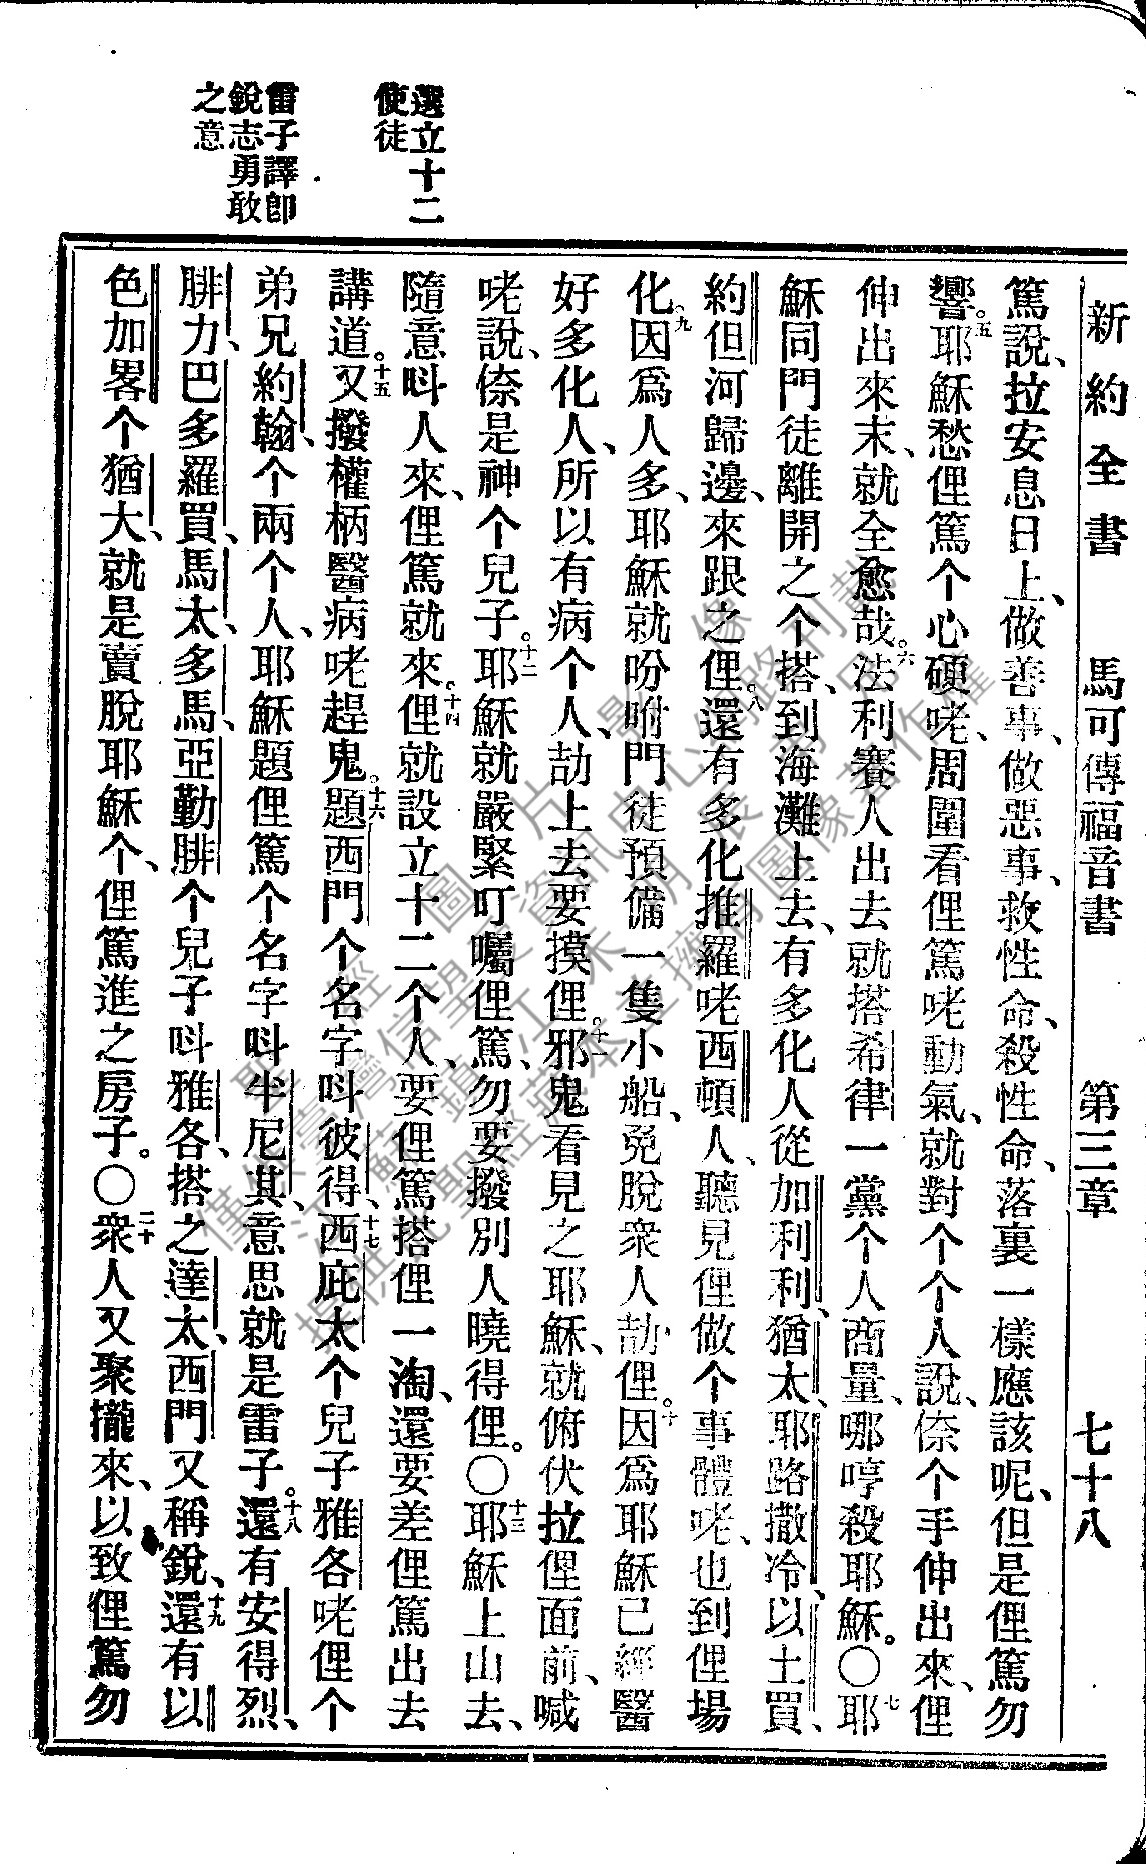 新約全書 馬可傳福音書 第三章 七十八
篤說、拉安息日上、做善事、做惡事、救性命、殺性命、落裏一樣應該呢、但是俚篤勿
響。五耶穌愁俚篤个心硬咾、周圍看俚篤咾動氣、就對个个人說、倷个手伸出來、俚
伸出來末、就全愈哉。六法利賽人出去就搭希律一黨个人商量、哪哼殺耶穌。〇七耶
穌同門徒離開之个搭、到海灘上去、有多化人從加利利、猶太、耶路撒冷、以土買、
約但河歸邊、來跟之俚。八還有多化推羅咾西頓人、聽見俚做个事體咾、也到俚場
化。九因爲人多、耶穌就吩咐門徒預備一隻小船、免脫衆人劼俚。十因爲耶穌已經醫
好多化人、所以有病个人、劼上去要摸俚。十一邪鬼看見之耶穌、就俯伏拉俚面前、喊
咾說、倷是神个兒子。十二耶穌就嚴緊叮囑俚篤、勿要撥別人曉得俚。〇十三耶穌上山去、
隨意呌人來、俚篤就來。十四俚就設立十二个人、要俚篤搭俚一淘、還要差俚篤出去
講道。十五又撥權柄醫病咾趕鬼。十六題西門个名字呌彼得、十七西庇太个兒子雅各咾俚个
弟兄約翰、个兩个人、耶穌題俚篤个名字呌半尼其、意思就是雷子。十八還有安得烈、
腓力、巴多羅買、馬太、多馬、亞勒腓个兒子呌雅各、搭之達太、西門又稱銳、十九還有以
色加畧个猶大、就是賣脫耶穌个、俚篤進之房子。〇二十衆人又聚攏來、以致俚篤勿
選立十二
使徒
雷子譯卽
銳志勇敢
之意